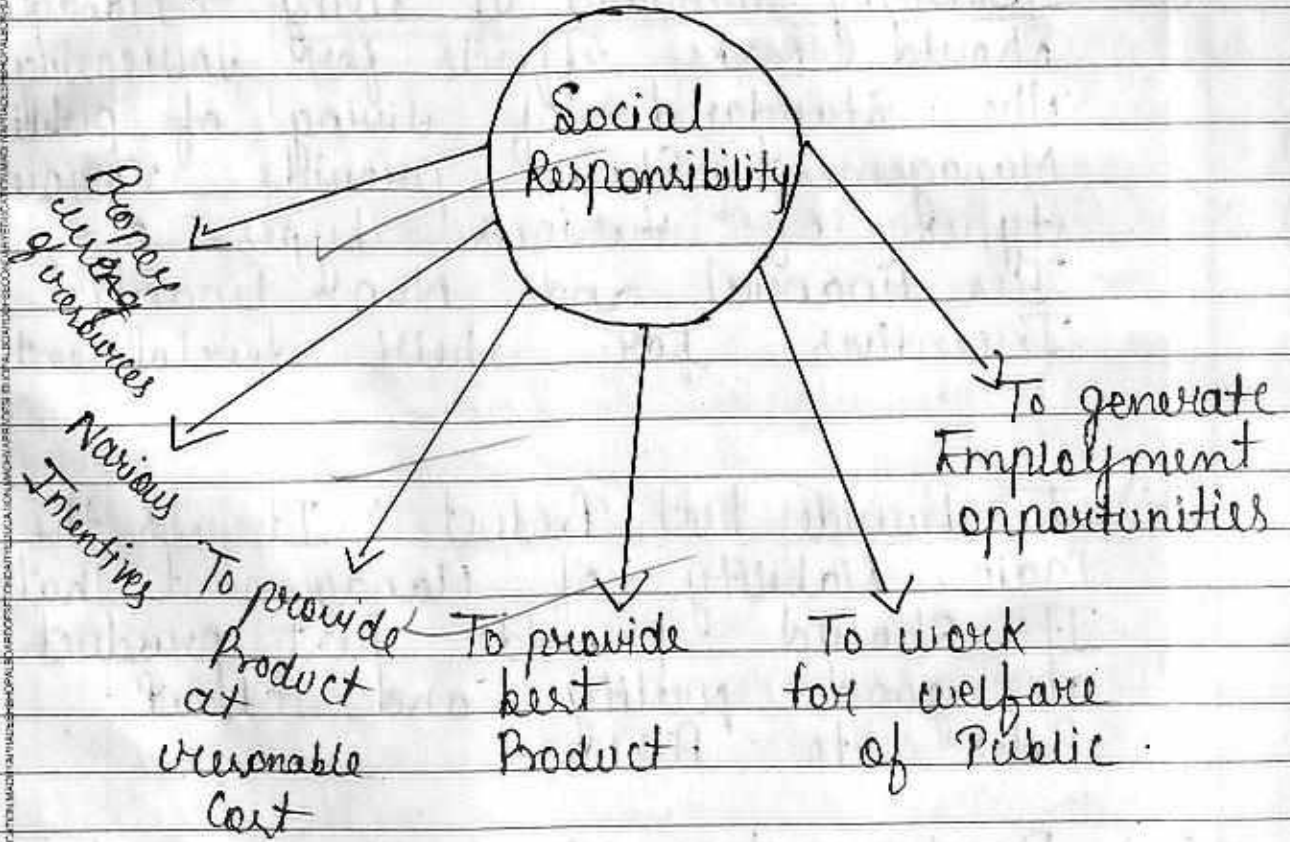 Social
Responsibility
Proper
of resources
Various
Intentives
To provide
Product
at
resonable
Cost
To provide
best
Product.
To work
for welfare
of Public.
To generate
Employment
opportunities